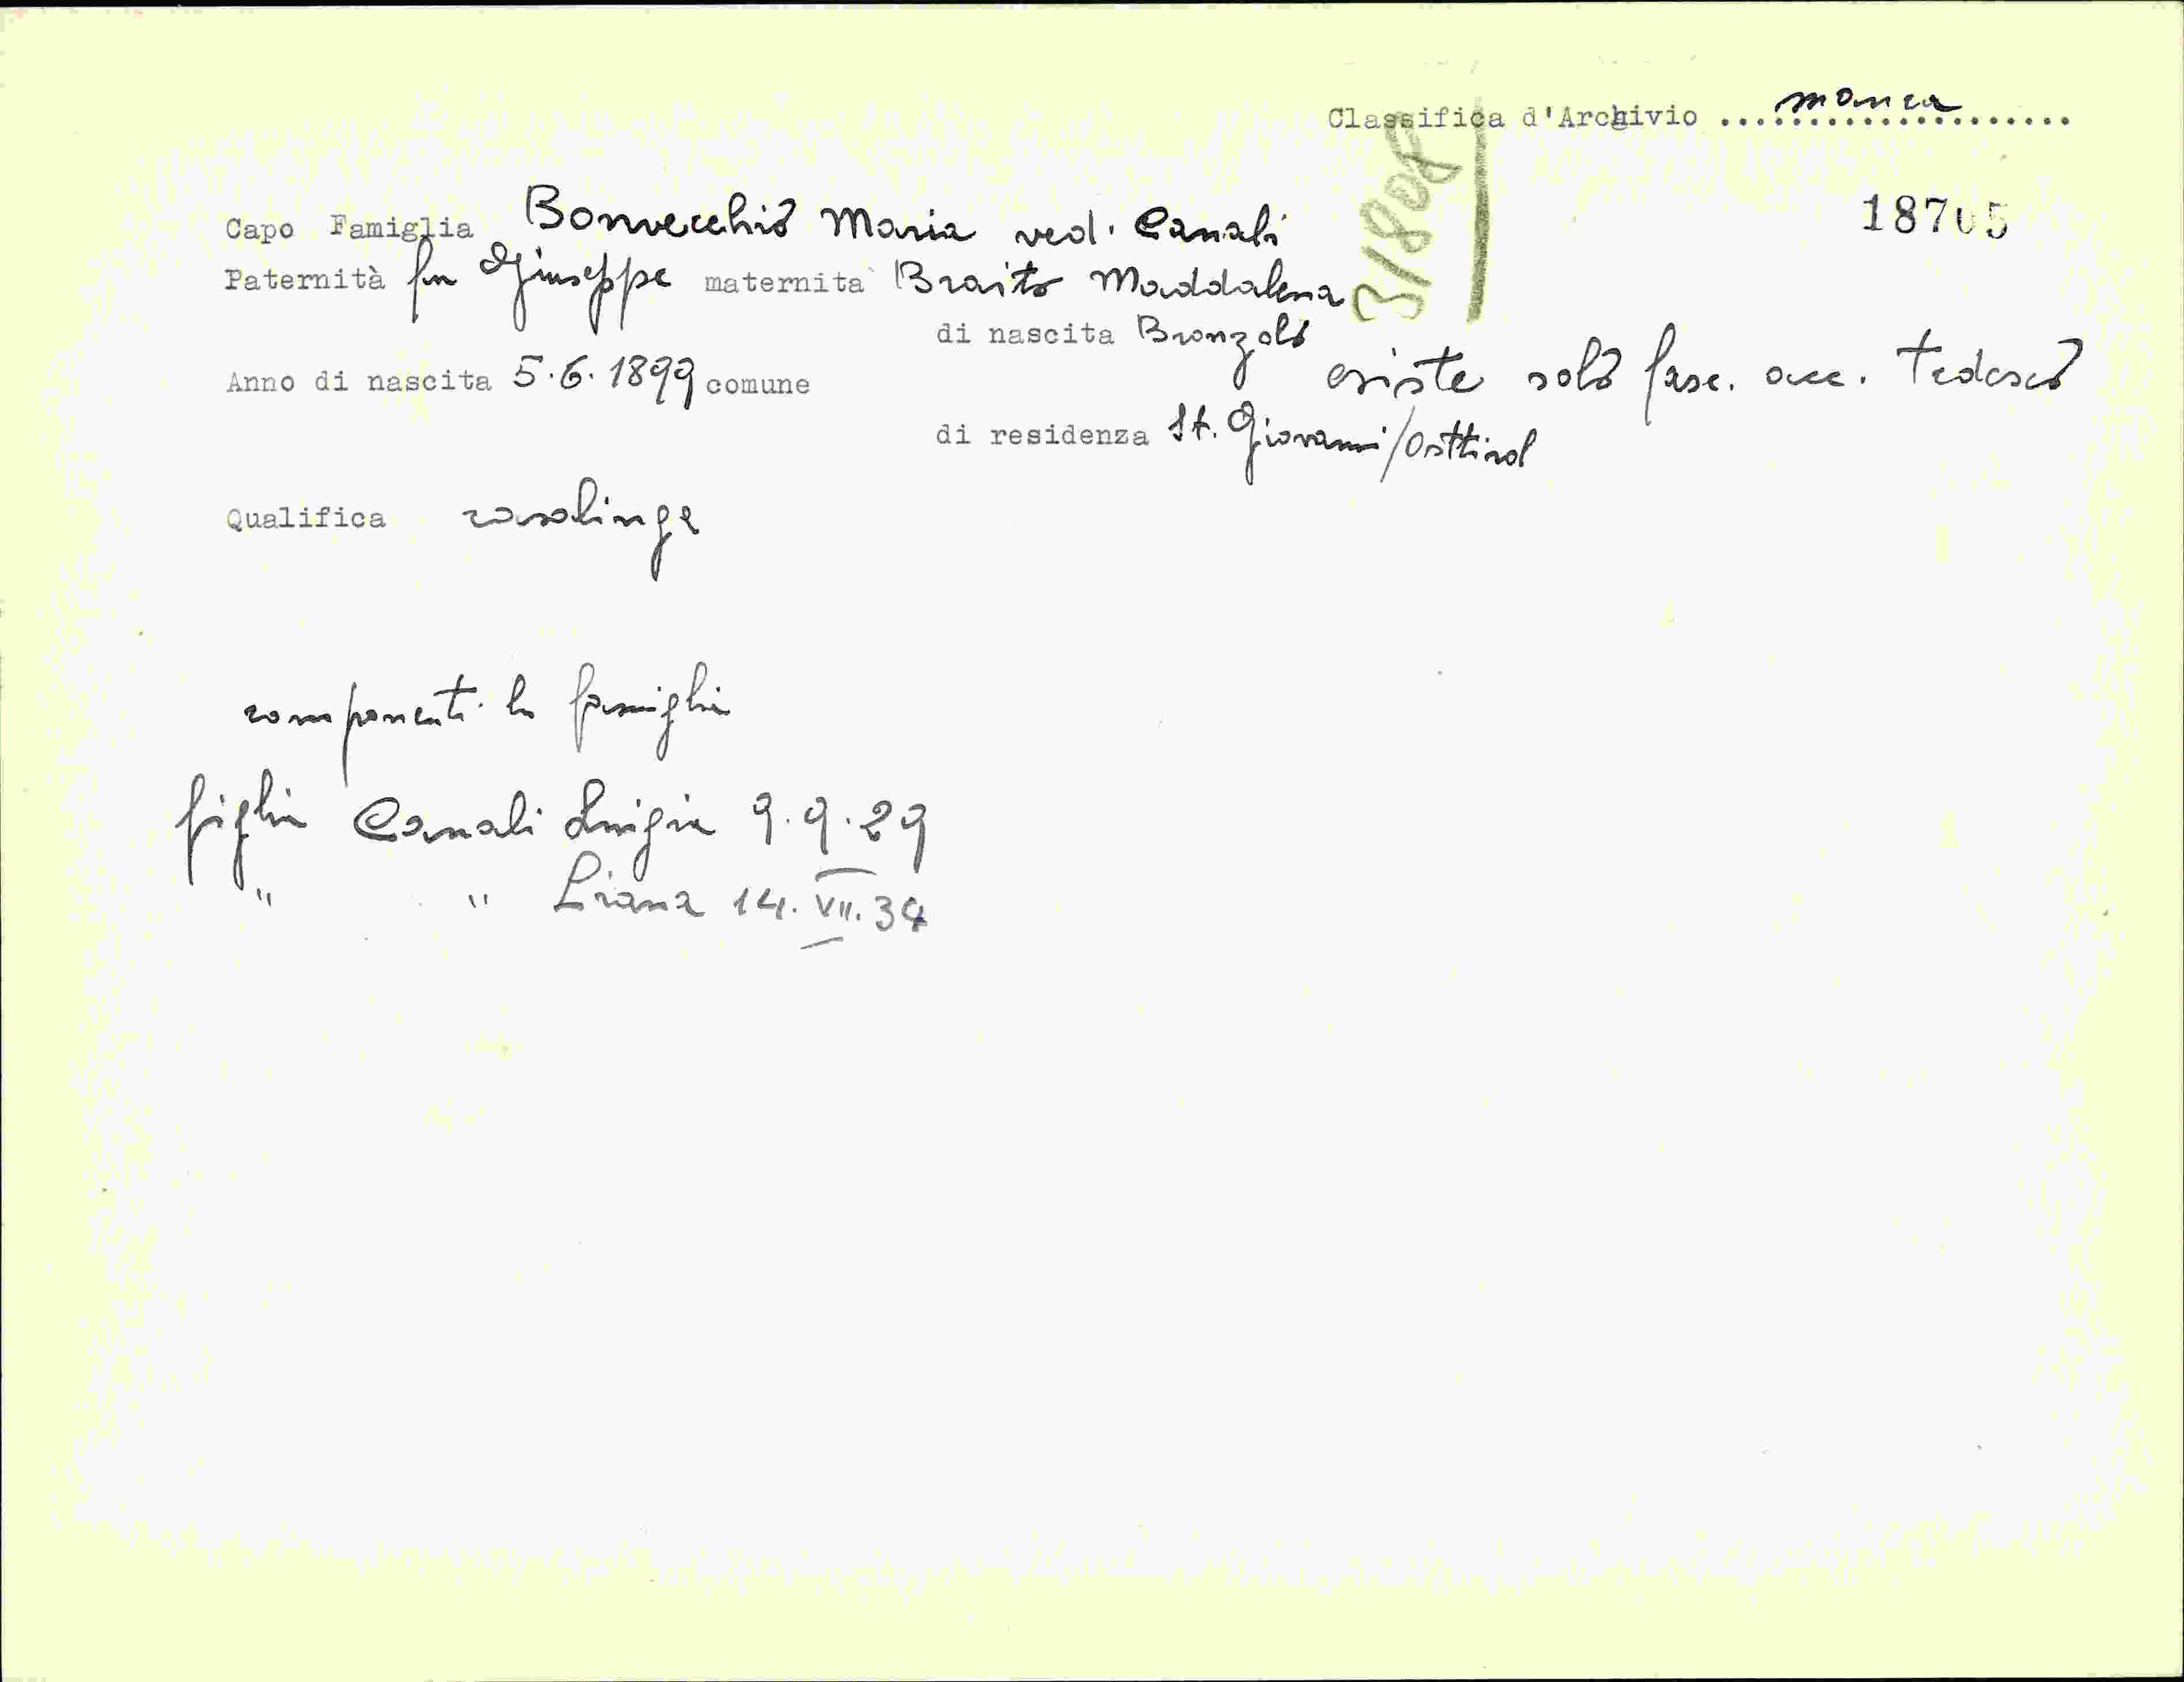 Classifica d'Archivio .................... manca
31808
18705
Capo Famiglia Bonvecchio Maria ved. Canali
Paternità fu Giuseppe maternità Braito Maddalena
di nascita Bronzolo
Anno di nascita 5.6.1899 comune
esiste solo fasc. acc. tedesco
di residenza St. Giovanni/Osttirol
Qualifica casalinga
componenti la famiglia
figlia Canali Luigia 9.9.29
" " Liana 14.VII.34